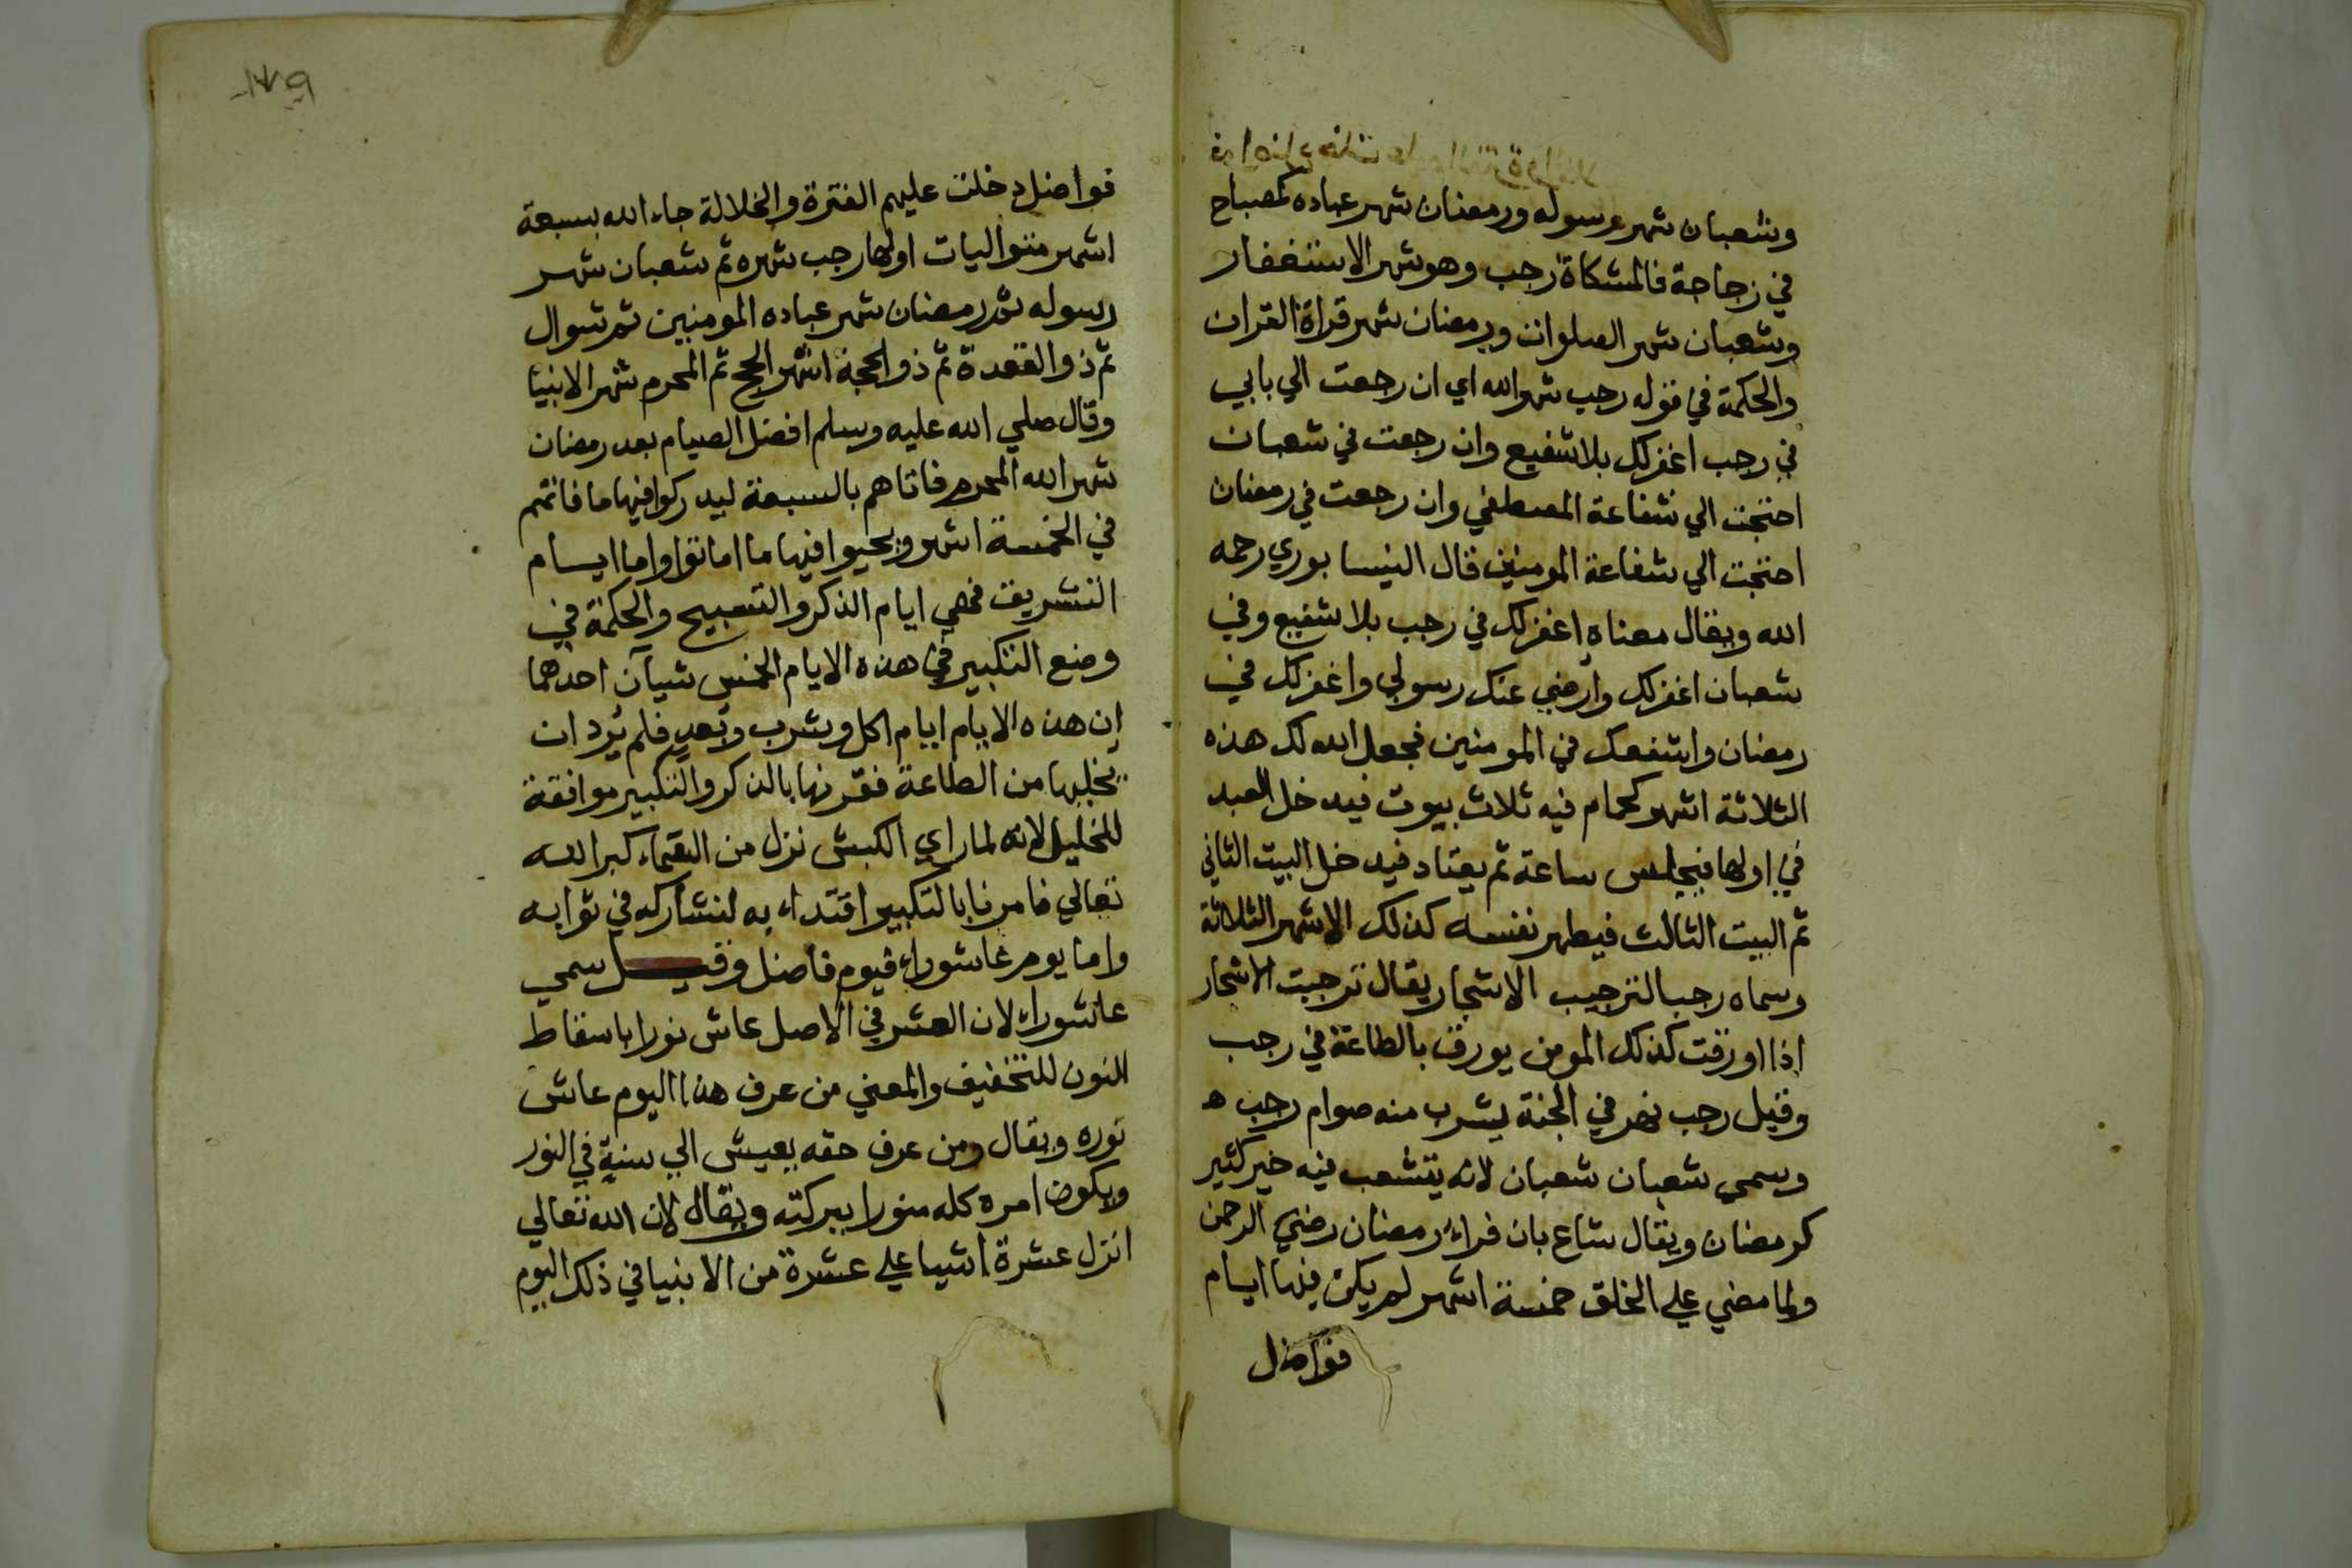 وشعبان شهر رسوله ورمضان شهر عباده كمصباح
في زجاجة فالمشكاة رجب وهو شهر الاستغفار
وشعبان شهر الصلوات ورمضان شهر قراة القران
والحكمة في قوله رجب شهر الله اي ان رجعت الي بابي
في رجب اغفر لك بلا شفيع وان رجعت في شعبان
احتجت الي شفاعة المصطفي وان رجعت في رمضان
احتجت الي شفاعة المومنين قال النيسابوري رحمه
الله ويقال معناه اغفر لك في رجب بلا شفيع وفي
شعبان اغفر لك وارضي عنك رسولي واغفر لك في
رمضان واشفعك في المومنين فجعل الله لك هذه
الثلاثة اشهر كحمام فيه ثلاث بيوت فيدخل العبد
في اولها فيجلس ساعة ثم يعتاد فيدخل البيت الثاني
ثم البيت الثالث فيطهر نفسه كذلك الاشهر الثلاثة
وسماه رجب الترجيب الاشجار يقال ترجبت الاشجار
اذا اورقت كذلك المومن يورق بالطاعة في رجب
وقيل رجب نهر في الجنة يشرب منه صوام رجب ه
وسمي شعبان شعبان لانه يتشعب فيه خير كثير
كرمضان ويقال شاع بان فراء رمضان رضي الرحمن
ولما مضي علي الخلق خمسة اشهر لم يكن فيها ايام
فواضل
١٣٩
فواضل دخلت عليهم الفترة والخلالة جاء الله بسبعة
اشهر متواليات اولها رجب شهره ثم شعبان شهر
رسوله ثم رمضان شهر عباده المومنين ثم شوال
ثم ذو القعدة ثم ذو الحجة اشهر الحج ثم المحرم شهر الانبيا
وقال صلي الله عليه وسلم افضل الصيام بعد رمضان
شهر الله المحرم فاتاهم بالسبعة ليدركوا فيها ما فاتهم
في الخمسة اشهر ويحيوا فيها ما اماتوا واما ايام
التشريق فهي ايام الذكر والتسبيح والحكمة في
وضع التكبير في هذه الايام الخمس شيآن احدهما
ان هذه الايام ايام اكل وشرب وبعد فلم يرد ان
يخليها من الطاعة فقرنها بالذكر والتكبير موافقة
للخليل لانه لما راي الكبش نزل من السماء كبر الله
تعالي فامرنا بالتكبير اقتداء به لنشاركه في ثوابه
واما يوم عاشوراء فيوم فاضل وقيل سمي
عاشوراء لان العشر في الاصل عاش نورا باسقاط
النون للتخفيف والمعني من عرف هذا اليوم عاش
نوره ويقال ومن عرف حقه يعيش الي سنة في النور
ويكون امره كله منورا ببركته ويقال لان الله تعالي
انزل عشرة اشيا علي عشرة من الانبيا في ذلك اليوم